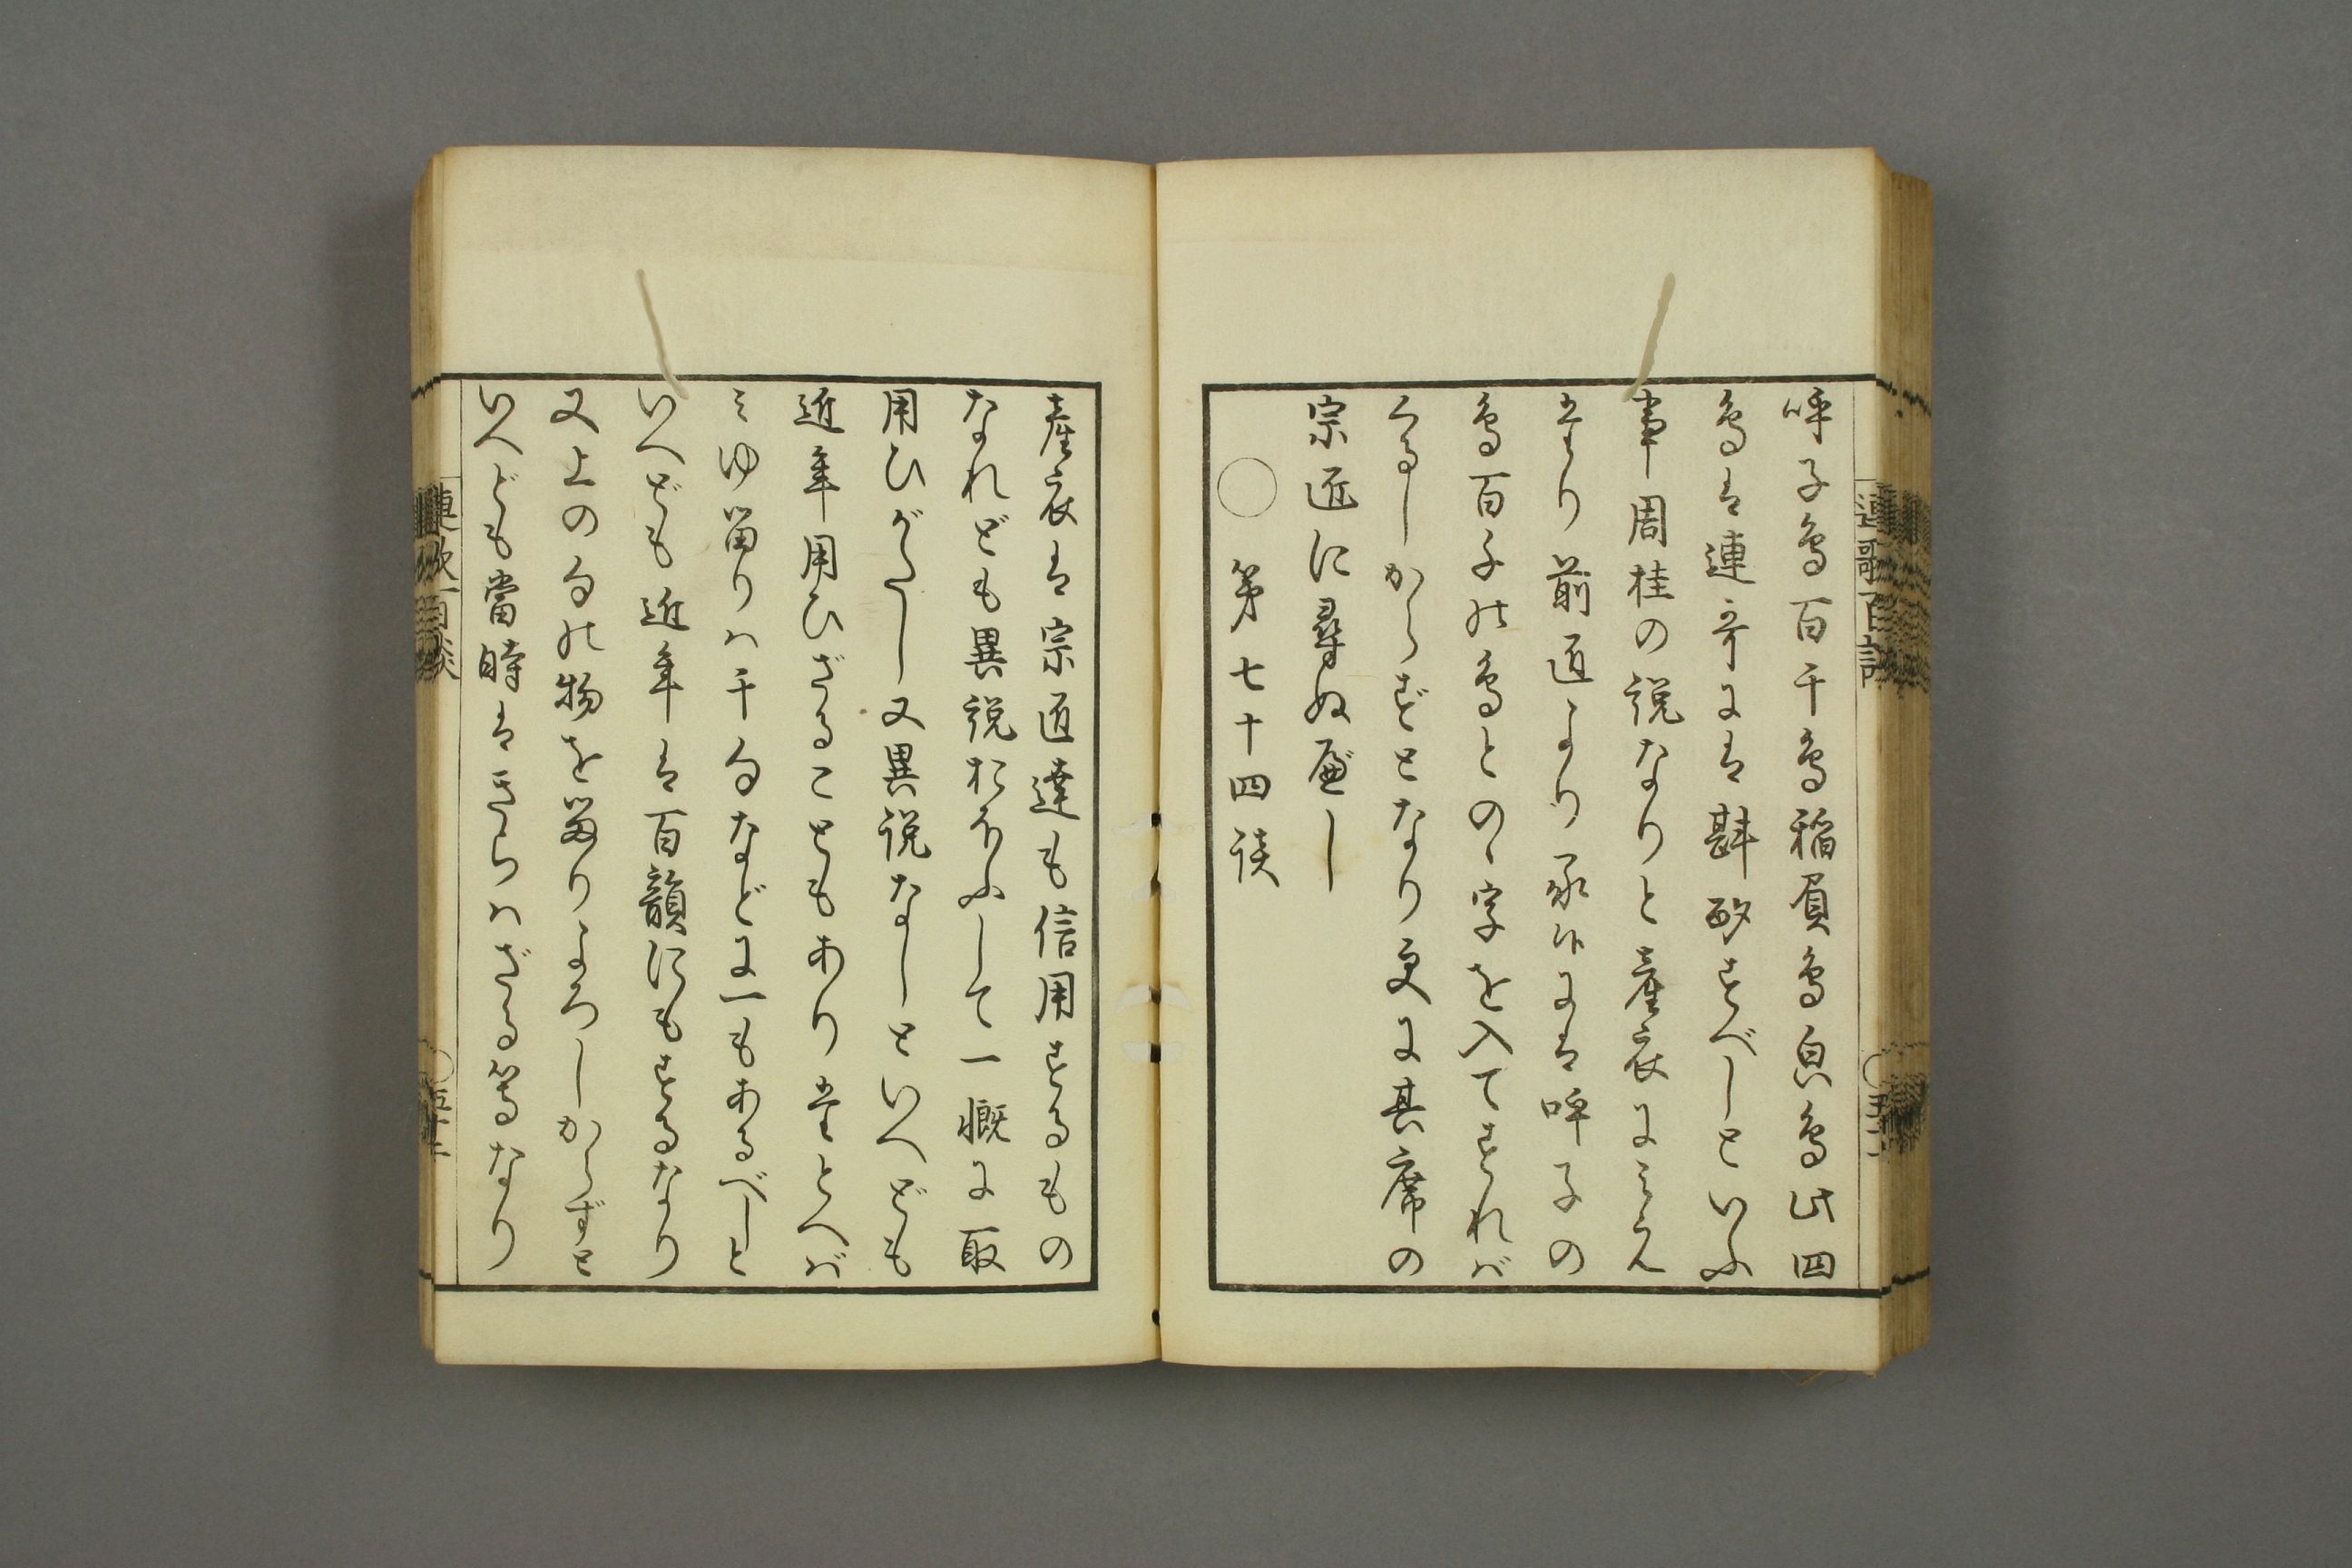 呼子鳥百千鳥稲負鳥皃鳥此四
鳥は連哥には斟酌すべしといふ
事周桂の説なりと産衣にみえ
たり前匠より承伝には呼子の
鳥百千の鳥とのゝ字を入てすれば
くるしからずとなり更に其席の
宗匠に尋ぬ べし
○ 第七十四談
産衣は宗匠達も信用するもの
なれども異説おほふして一概に取
用ひがたし又異説なしといへども
近年用ひざることもあり たとへば
みゆ留りハ千句などに一もあるべしと
いへども近年は百韻にもするなり
又上の句の物を留りよろしからずと
いへども當時はきらハざる等なり
連歌百談